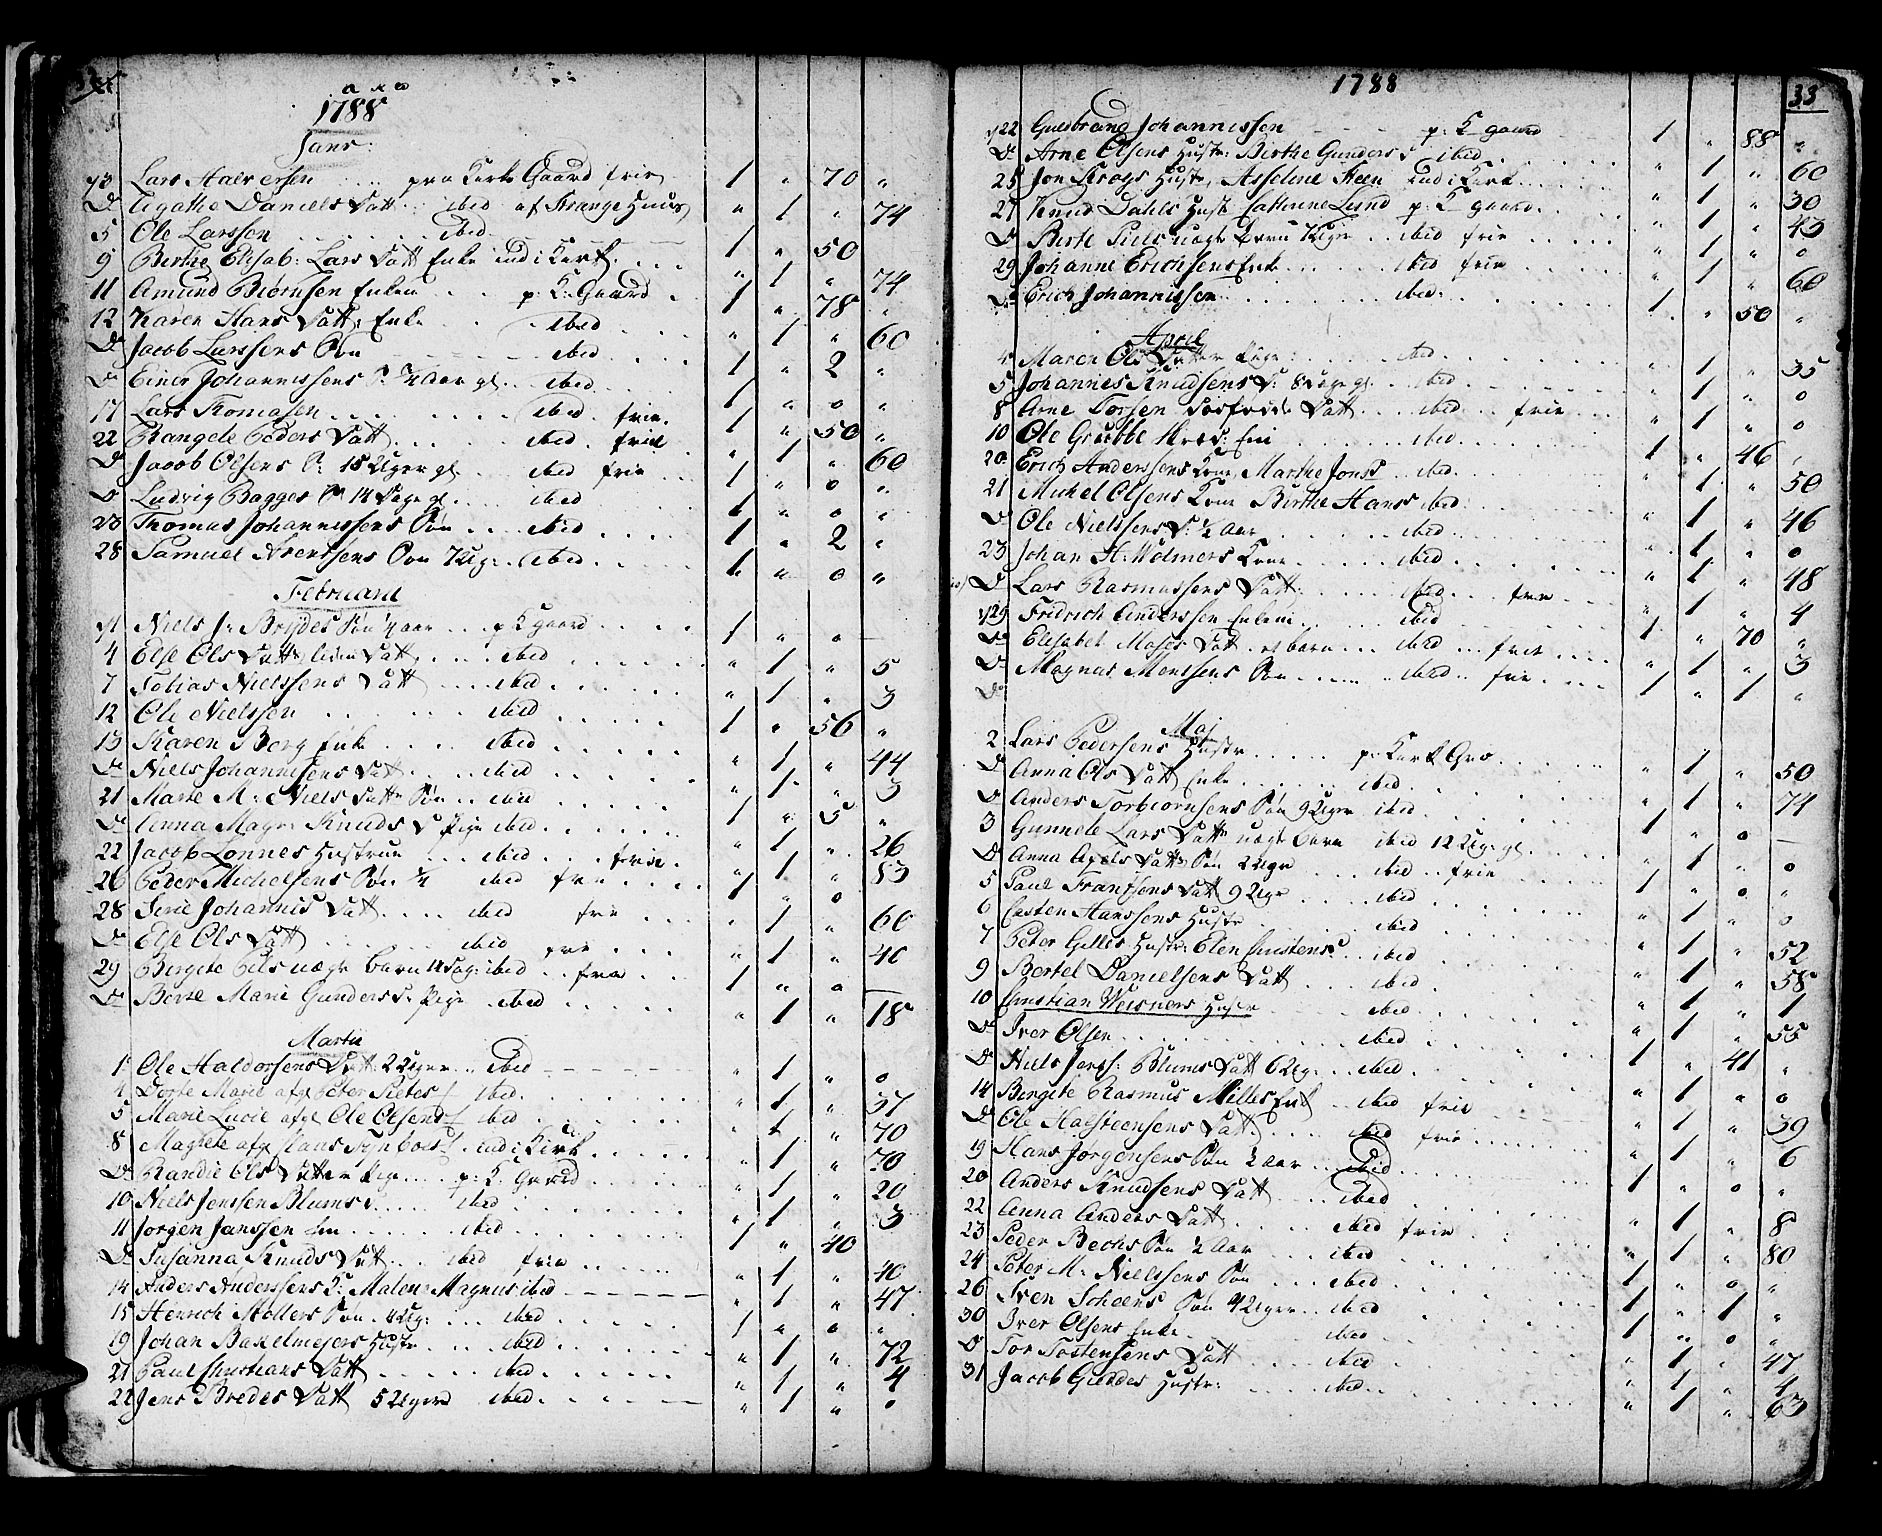 1788
Janr:
Lars Halversen ..... paa Kirke Gaard frie 1 " 70 "
D. Agathe Daniels Datt. ibid af Strange Huus " 1 " 74
5 Ole Larssen ....... ibid. 1 " 50
9 Berthe Elisab: Lars Datt Enke ind i Kirk. ... " 1 " 74
11 Amund Biørnsen Enkem ... p: K: Gaard . 1 " 78 "
12 Karen Hans Datt: Enke .. ibid ... " 1 " 60
D. Jacob Larssens Søn ibid ... 1 " 2 "
D. Einer Johannissens S. ¼ Aar gl. .. ibid .. 1 " 0 "
17 Lars Thomasen ....... ibid . frie. 1 " 50 "
22 Rangele Peders Datt. .... ibid . frie " 1 " 60
D. Jacob Olsens S: 18 Uger gl .. ibid frie ... 1 " 0 "
D. Ludvig Bagges S. 14 Dage gl .... ibid 1 " 0 "
23 Thomas Johannissens Søn ... ibid .... 1 " 2 "
28 Samuel Arentsens Søn 7 Ug: . ibid . 1 " 0 "
Februarii
Niels J. Brydes Søn ¼ aar ... p K gaard .... 1 " 0 —
4 Else Ols Datt: liden Datt .... ibid " 1 " 5
7 Tobias Nielssens Datt .... ibid " 1 " 3
12 Ole Nielssen ...... ibid 1 " 56 "
13 Karen Berg Enke .... ibid " 1 " 44
D. Niels Johannisens Datt .... ibid " 1 " 3
21 Marte M: Niels Datt: Søn .. ibid 1 " 5 "
D. Anna Magr: Knuds D Pige ibid " 1 " 26
22 Jacob Lønnes Hustrue ... ibid ... frie. " 1 " 83
26 Peder Michelsens Søn ¼ ibid frie 1 " 0
28 Serie Johannis Datt .... ibid frie ... " 1 " 60
D. Else Ols Datt ..... ibid frie ... " 1 " 40
29 Bergite Ols uægte barn 14 Dag: ibid . frie ... 1 " 0
D. Berte Marie Gunders D. Pige ibid .... " 1 " 18
Martii
1 Ole Haldorsens Datt: 2 Uger .. ibid " 1 " 0
4 Dorte Marie afg: Peter Pieters ibid. " 1 " 37
5 Marie Lucie afg: Ole Olsens ibid " 1 " 70
8 Magrete afg. Claas ind i Kirk ..... " 1 " 70
D. Randie Ols Datter Pige .... p: K. Gaard " 1 " 20
10 Niels Jenssen Blums .... ibid " 1 " 3
11 Jorgen Janssen Em ..... ibid 1 " 40
D. Susanna Knuds Datt .. ibid frie " 1 " 40
14 Anders Anderssens K: Malene Magnus ibid " 1 " 47
15 Henrich Møllers Søn . 4 Ug: ... ibid 1 " 0 "
19 Johan Baxelmejers Hustr .... ibid " 1 " 72
21 Paul Christians Datt ..... ibid " 1 " 4
22 Jens Bredes Datt 5 Ugers ibid " 1 " 0
1788
33
Guldbrand Johannissen .... p: K gaard 1 " 88 "
D. Arne Olsens Hustr: Birthe Gunders D ibid " 1 " 60
25 Jon Krogs Hustr, Asseline Steen ind i Kirk " 1 " 30
27 Knud Dahls Hust Cathrine Lund p: K gaard " 1 " 43
D. Berte Piels uægte barn 7 Uger .. ibid frie " 1 " 0
29 Johanne Erichsens Enke ..... ibid frie " 1 " 60
D. Erich Johannissen ibid: 1 " 50 "
April
4 Maren Ols Datter Pige: .... ibid " 1 " 35
5 Johannes Knudsens D: 8 Uger gl. . ibid " 1 " 0
8 Arne Torsen Datt .. ibid .. frie " 1 " 0
10 Ole Grubbe Em ibid 1 " 46
20 Erich Anderssens Kone, Marthe Jons D ibid " 1 " 50
21 Michel Olsens Kone Birthe Hans ibid " 1 " 46
D. Ole Nielssens D: ½ Aar ibid " 1 " 0
23 Johan H: Wolmers Kone ...... ibid " 1 " 48
D. Lars Rasmussens Datt ibid ... frie " 1 " 4
29 Fridrich Anderssen Enkem ..... ibid 1 " 70 "
D. Elisabet Moses Datt et barn ... ibid ... frie " 1 " 3
D. Magnus Monssens Søn ...... ibid .. frie 1 " 1 "
D.
Maj
2 Lars Pedersens Hustr ..... p: Kirk Grd " 1 " 50
D. Anna Ols Datt Enke ...... ibid " 1 " 74
D. Anders Torbiørnsens Søn 9 Uger ibid 1 " 0 —
3 Gunnele Lars Datt: uægte barn ibid 12 Uger gl. " 1 " 0
D. Anna Apels Datt: Søn 2 Uger ibid .. frie 1 " 0 "
5 Paul Frantsens Datt 9 Uger .... ibid " 1 " 0
6 Carsten Hanssens Hustr ibid " 1 " 52
7 Peter Gilles Hustr: Elen Christens D. ibid " 1 " 58
9 Bertel Danielsens Datt .... ibid " 1 " 1
10 Christian Weisners Hustr ibid " 1 " 55
D. Iver Olsen .......... ibid 1 " 41 "
D. Niels Jenss: Blums Datt 6 Ug. ... ibid " 1 " 0
14 Bergite Rasmus Milles Enk .. ibid frie " 1 " 39
D. Ole Halsteensens Datt .... ibid frie " 1 " 6
19 Hans Jørgensens Søn ½ Aar ibid 1 " 0 "
20 Anders Knudsens Datt .... ibid " 1 " 8
22 Anna Anders Datt .... ibid frie " 1 " 80
23 Peder Bechs Søn ½ Aar .... ibid 1 " 0 "
24 Peter M: Nielssens Søn .... ibid 1 " 1 "
26 Sven Scheens Søn 4 Uger .. ibid 1 " 0 "
30 Iver Olsens Enke ibid " 1 " 47
D. Tor Tostensens Datt ..... ibid " 1 " 1
31 Jacob Giæddes Hustr: .... ibid " 1 " 63